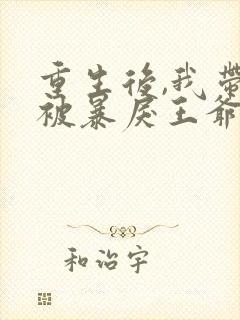 重生後,我帶
被暴戾王爺
和治宇